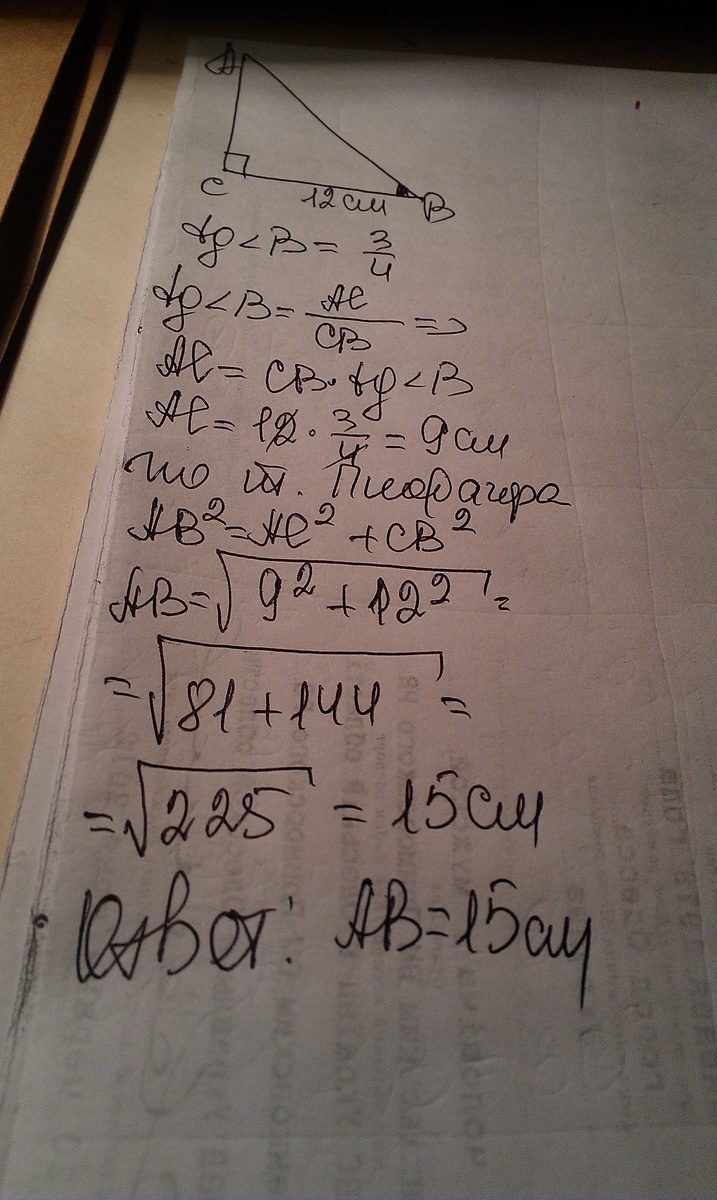 A
C
12 см
B
tg<B = 3/4
tg<B = AC/CB =>
AC = CB · tg<B
AC = 12 · 3/4 = 9 см
по т. Пифагора
AB² = AC² + CB²
AB = √(9² + 12²) =
= √(81 + 144) =
= √225 = 15 см
Ответ: AB = 15 см